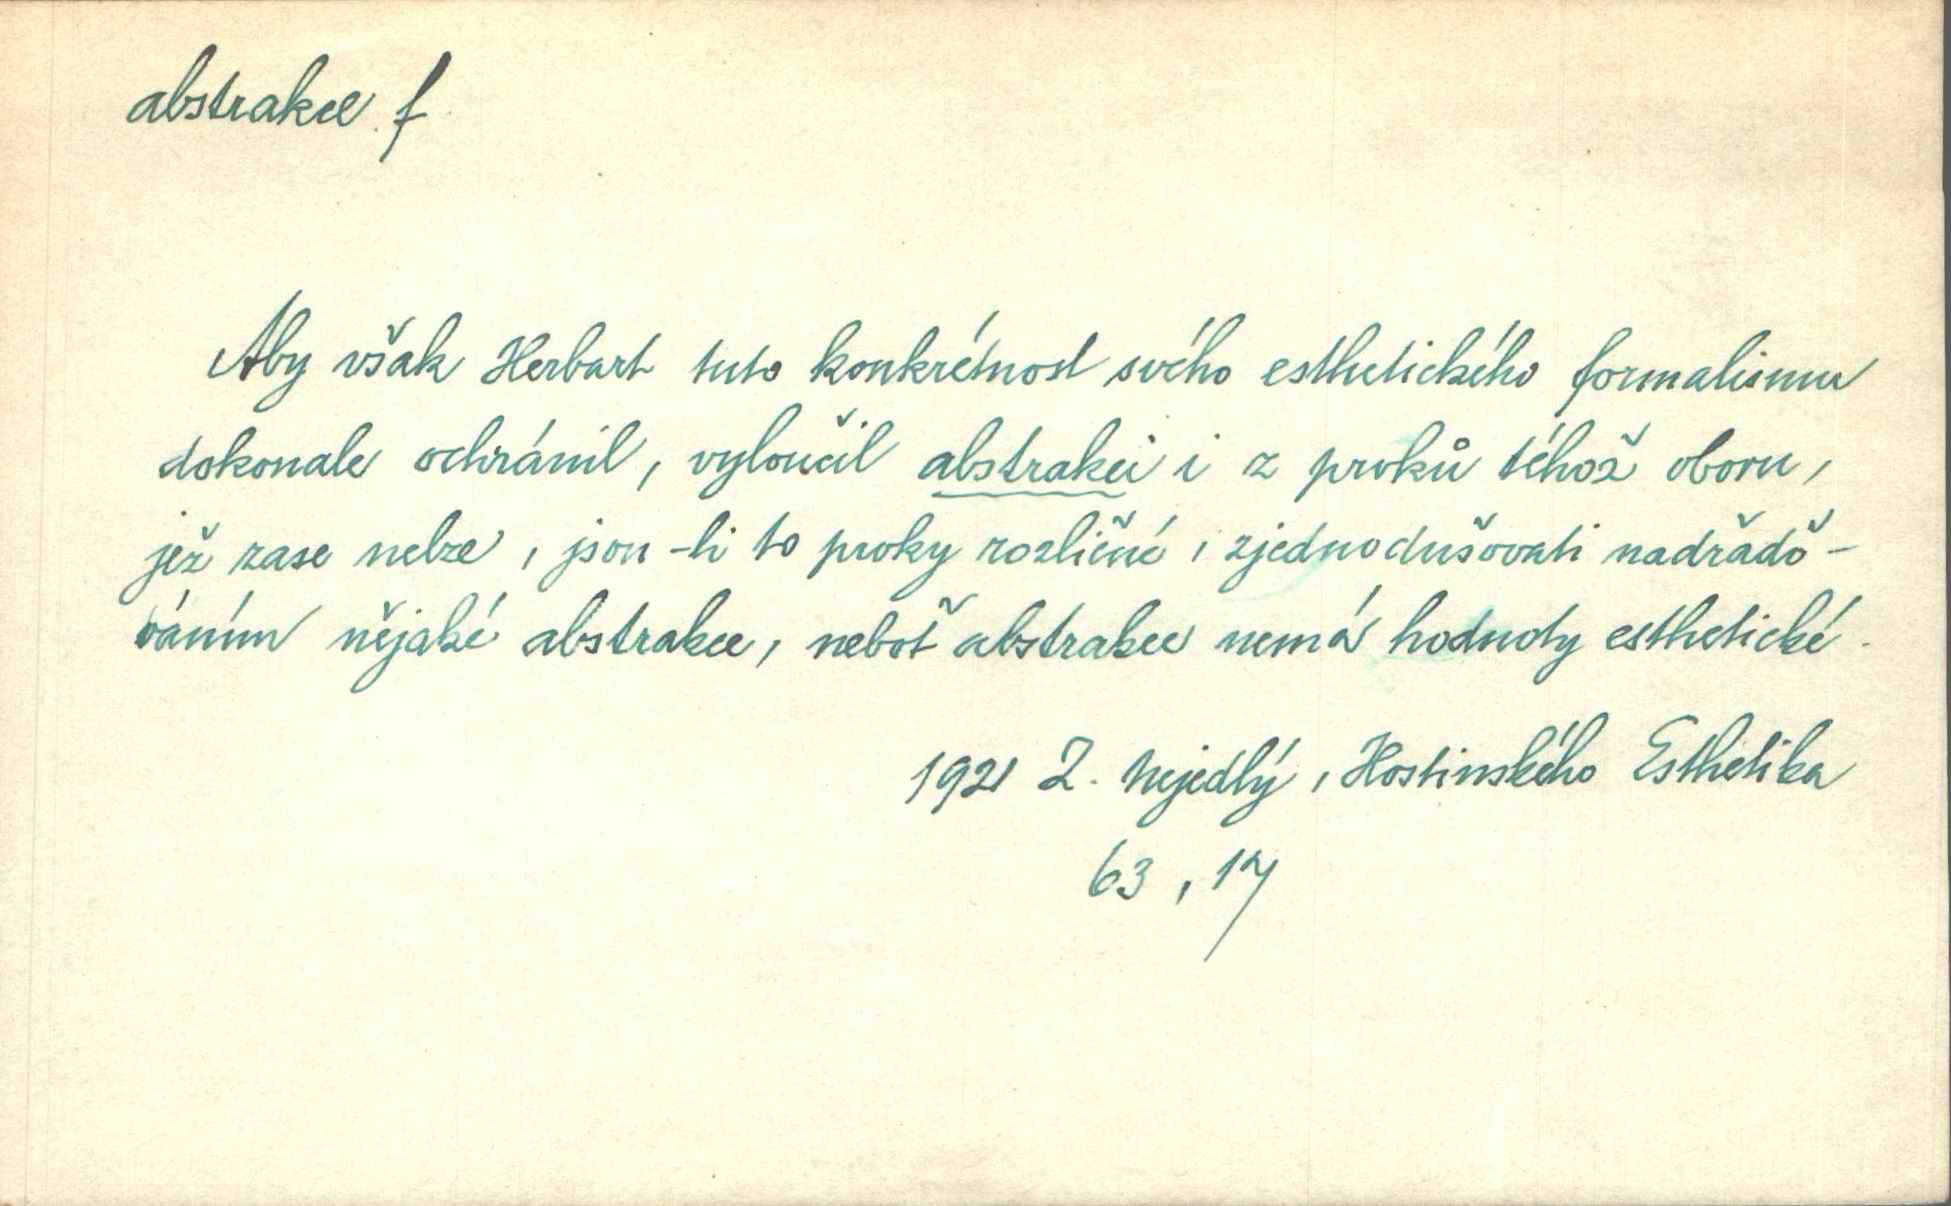 abstrakce f
Aby však Herbart tuto konkrétnost svého esthetického formalismu
dokonale ochránil, vyloučil abstrakci i z prvků téhož oboru,
jež zase nelze, jsou-li to prvky rozličné, zjednodušovati nadřaďo-
váním nějaké abstrakce, neboť abstrakce nemá hodnoty esthetické.
1921 Z. Nejedlý, Hostinského Esthetika
63, 17